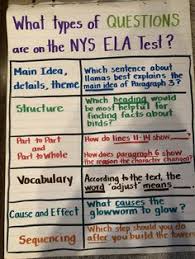 What types of QUESTIONS
are on the NYS ELA Test?
Main Idea,
details, theme
Which sentence about
llamas best explains the
main idea of Paragraph 3?
Structure
Which heading would
be most helpful for
finding facts about
birds?
Part to Part
and
Part to Whole
How do lines 11-14 show...
How does paragraph 6 show
the reason the character changed?
Vocabulary
According to the text, the
word "adjust" means
Cause and Effect
What causes the
glowworm to glow?
Sequencing
Which step should you do
after you build the tower